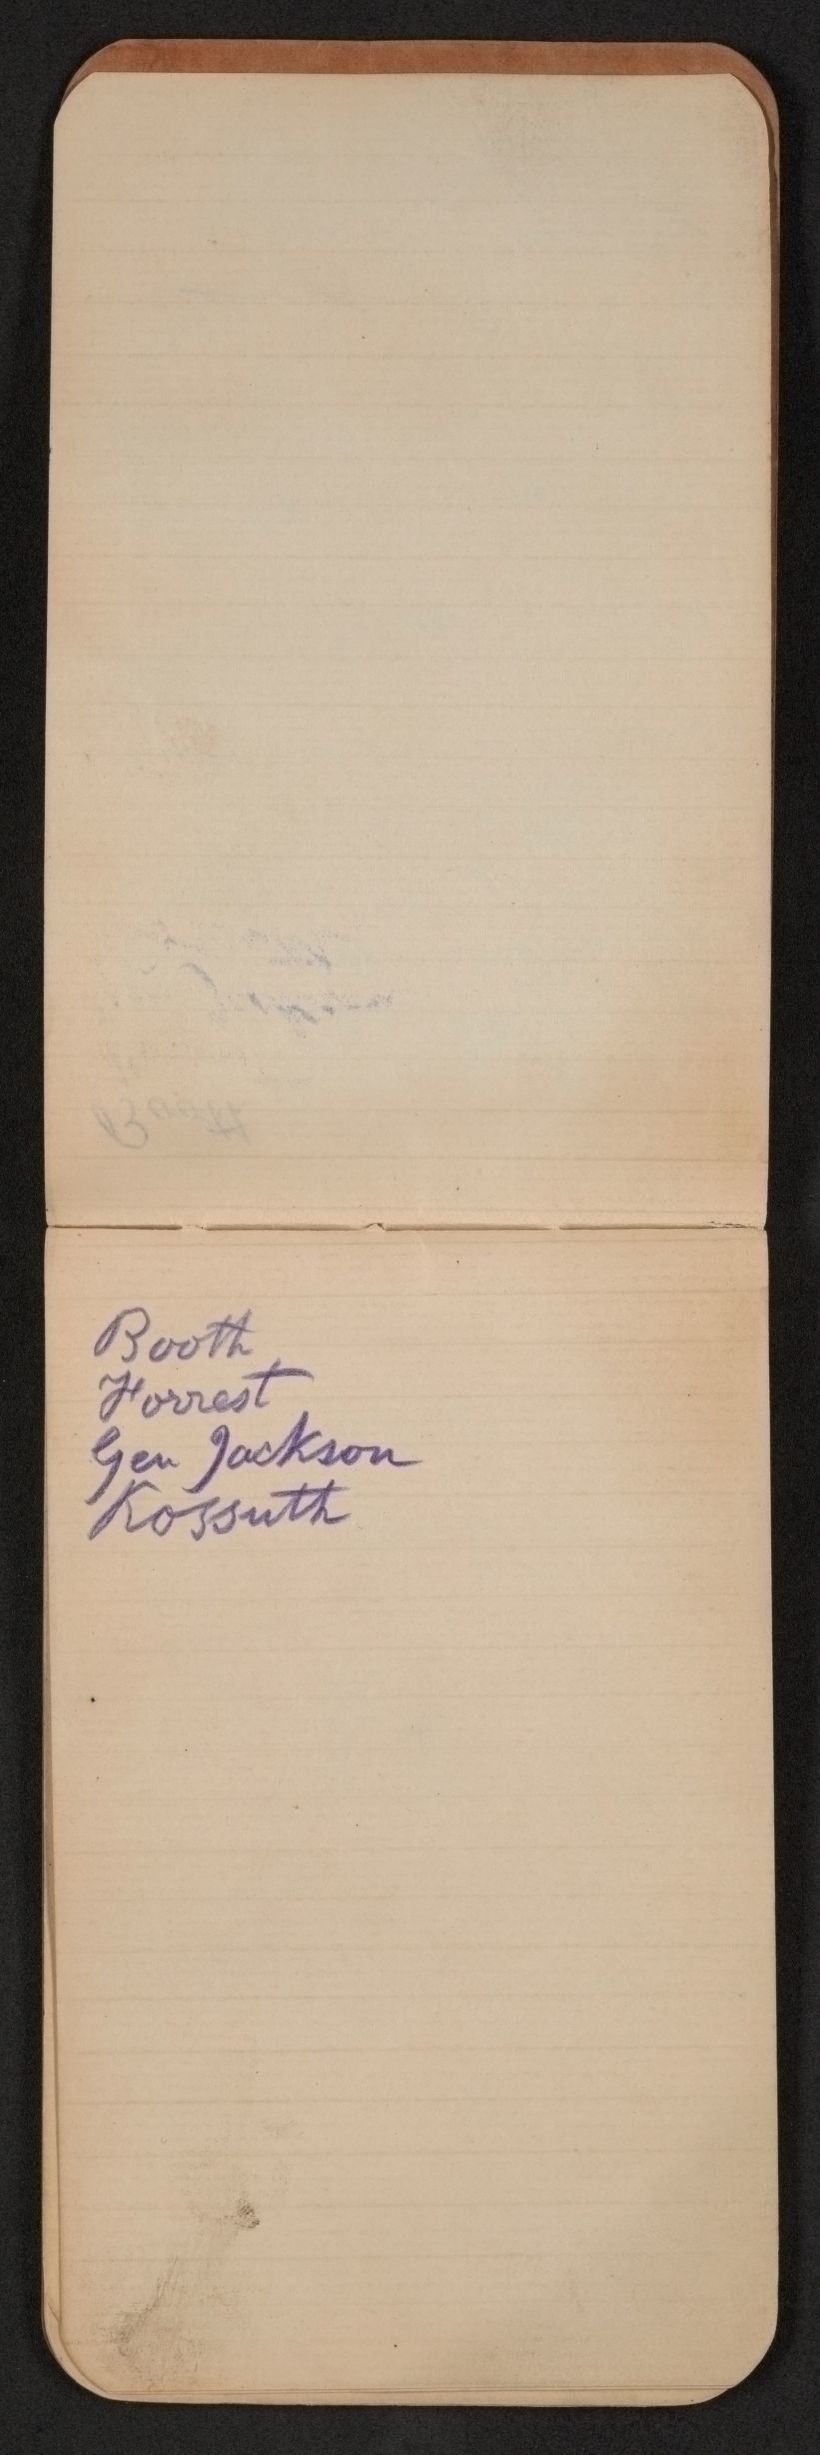 Booth
Forrest
Gen Jackson
Kossuth